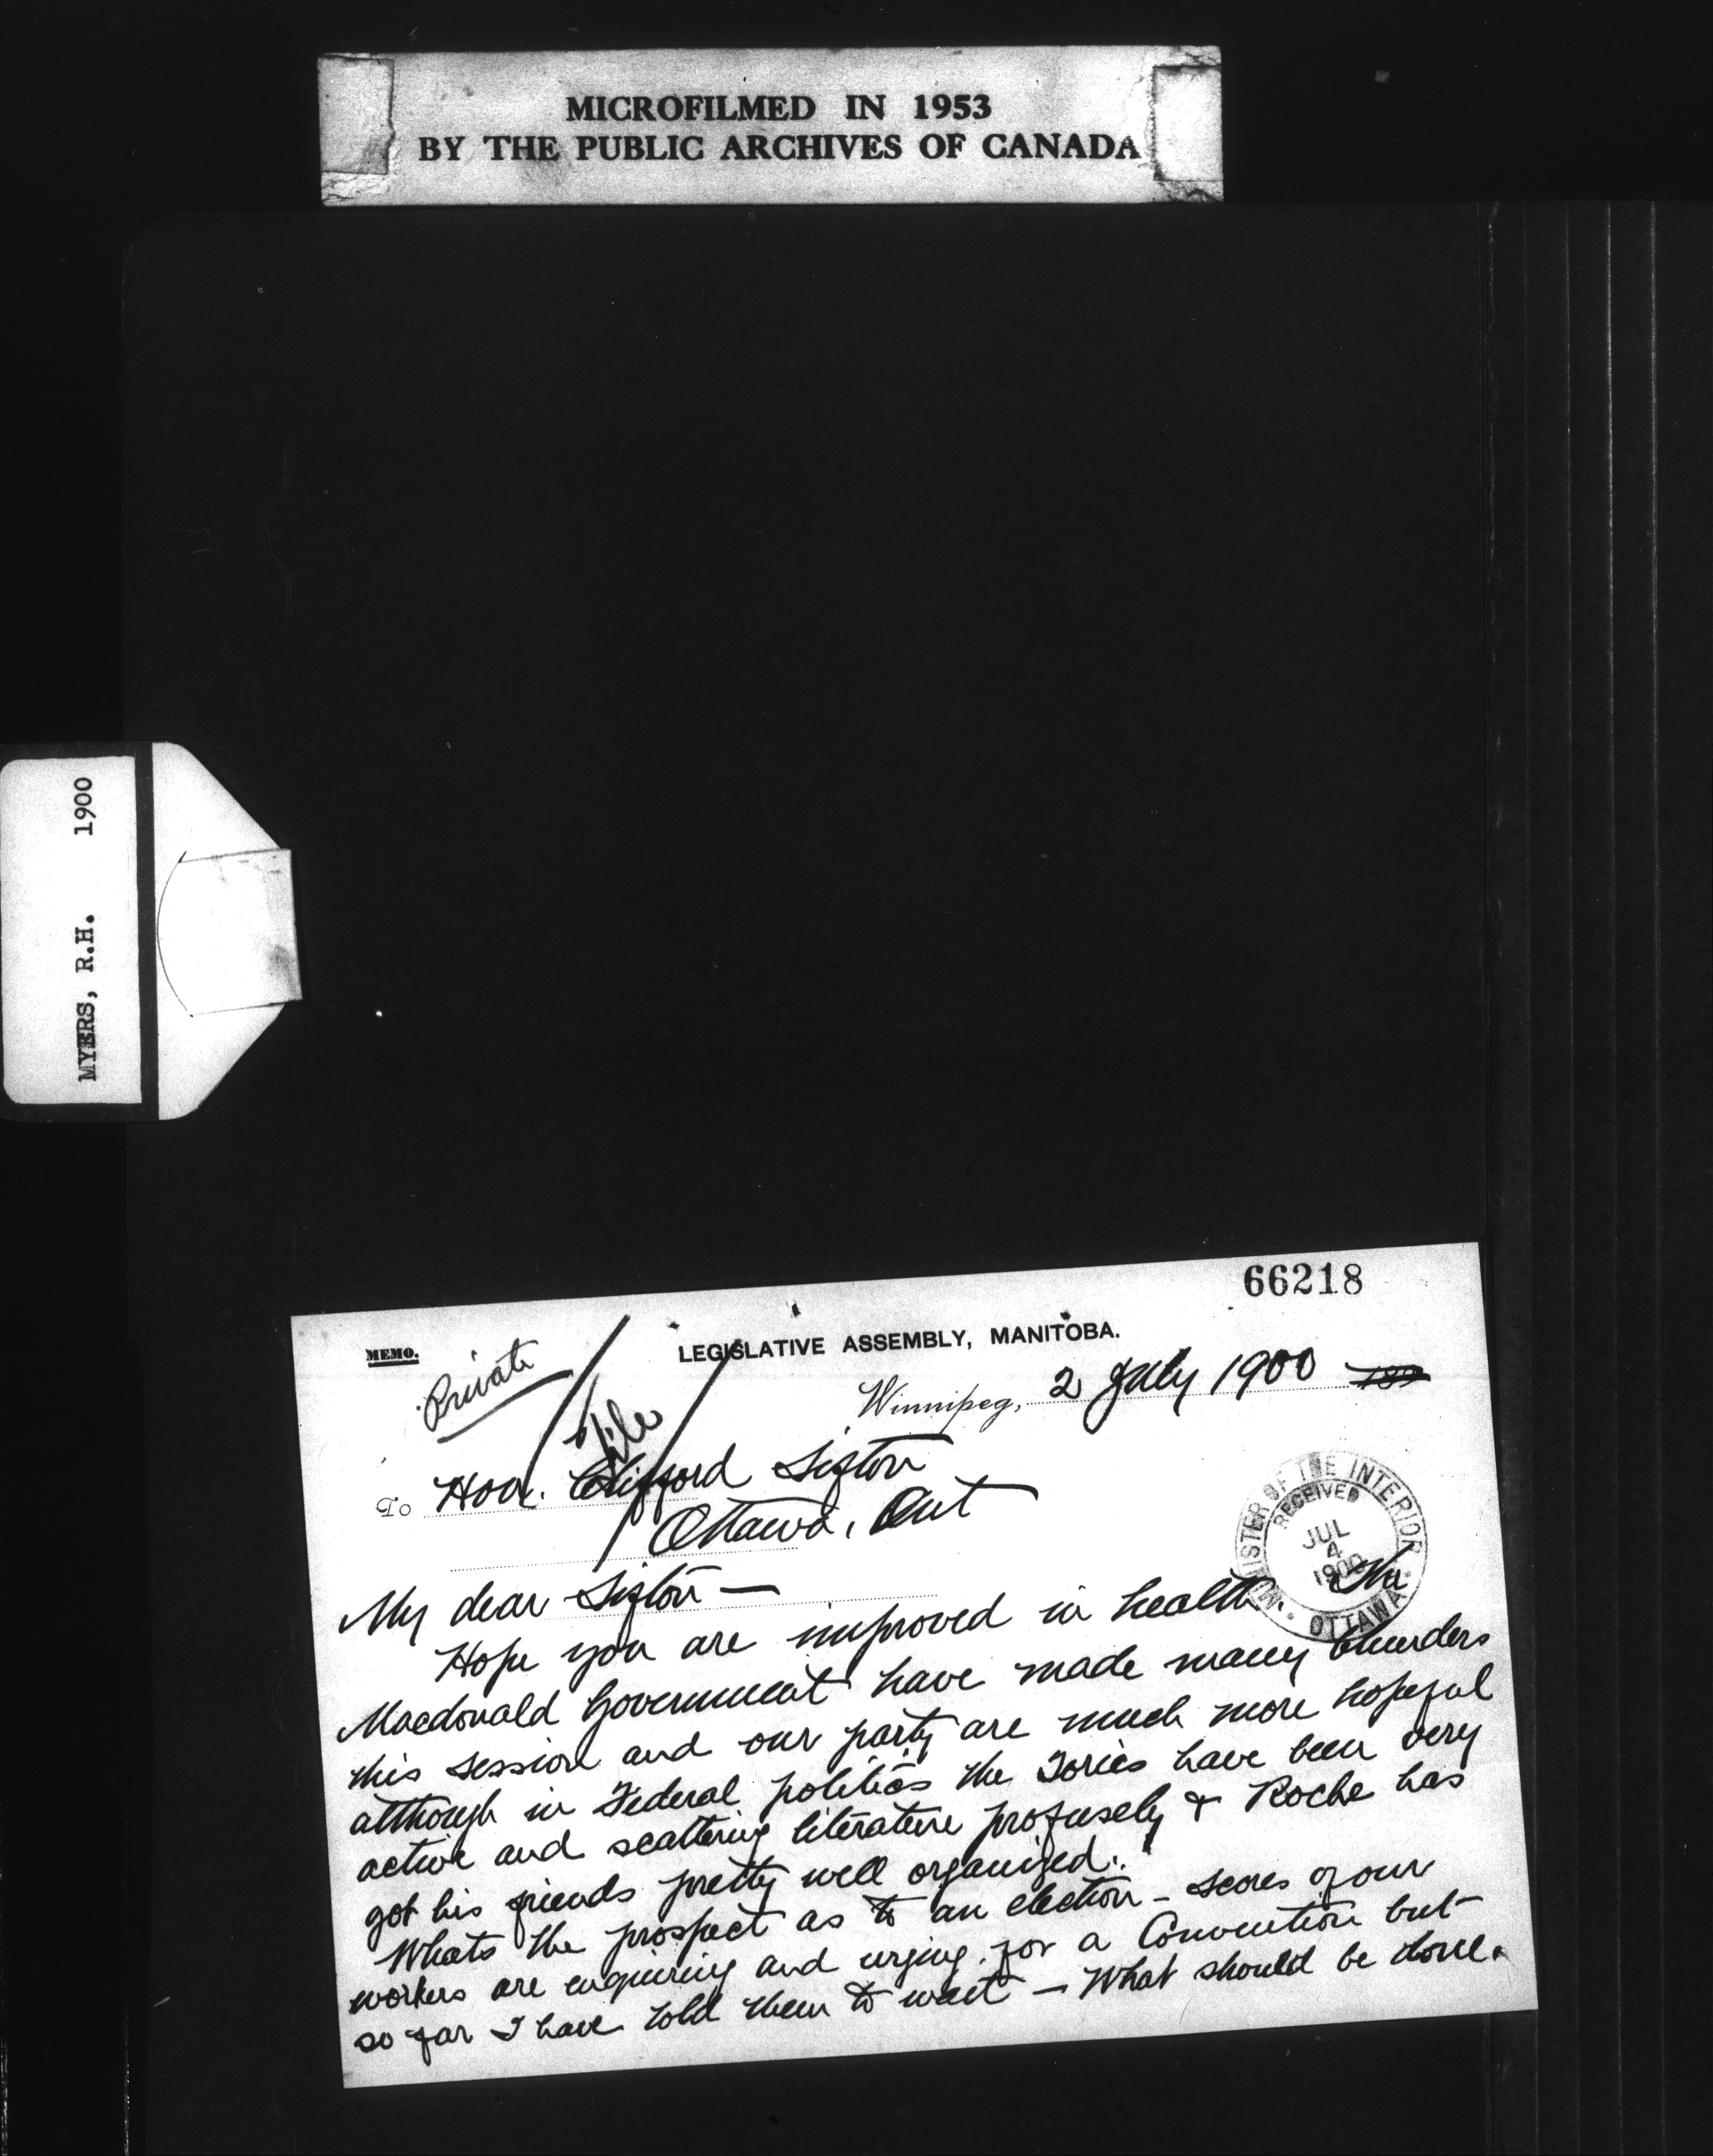 MICROFILMED IN 1953
BY THE PUBLIC ARCHIVES OF CANADA
MYERS, R.H. 1900
66218
MEMO.
LEGISLATIVE ASSEMBLY, MANITOBA.
Private
File
Winnipeg, 2 July 1900 189
To Hon. Clifford Sifton
Ottawa, Ont
MINISTER OF THE INTERIOR
RECEIVED
JUL
4
1900
OTTAWA
My dear Sifton —
Hope you are improved in health. The
Macdonald Government have made many blunders
this session and our party are much more hopeful
although in Federal politics the Tories have been very
active and scattering literature profusely & Roche has
got his friends pretty well organized.
Whats the prospect as to an election – scores of our
workers are enquiring and urging for a Convention but
so far I have told them to wait – What should be done.